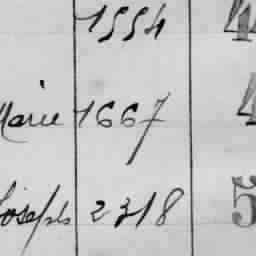 1554 4
Marie 1667 4
Joseph 2318 5